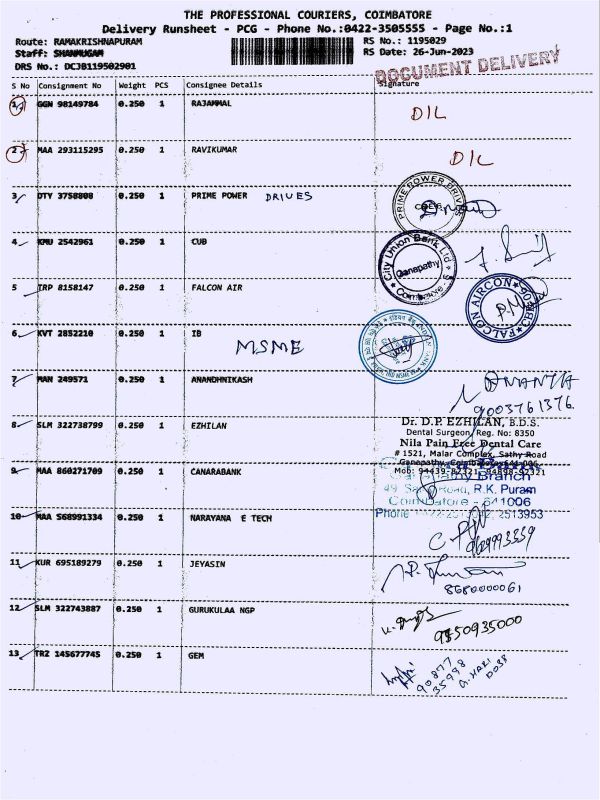 THE PROFESSIONAL COURIERS, COIMBATORE
Delivery Runsheet - PCG - Phone No.:0422-3505555 - Page No.:1
Route: RAMAKRISHNAPURAM
RS No.: 1195029
Staff: SHANMUGAM
RS Date: 26-Jun-2023
DRS No.: DCJB119502901
DOCUMENT DELIVERY
S No Consignment No Weight PCS Consignee Details Signature
1 GGN 98149784 0.250 1 RAJAMMAL D/L
2 MAA 293115295 0.250 1 RAVIKUMAR D/L
3 DTY 3758808 0.250 1 PRIME POWER DRIVES
PRIME POWER DRIVES
4 KMU 2542961 0.250 1 CUB
City Union Bank Ltd
Ganapathy
Coimbatore
5 TRP 8158147 0.250 1 FALCON AIR
FALCON AIRCON
6 KVT 2852210 0.250 1 IB
MSME
7 MAN 249571 0.250 1 ANANDHNIKASH
9003761376
8 SLM 322738799 0.250 1 EZHILAN
Dr. D.P. EZHILAN, B.D.S.
Dental Surgeon, Reg. No: 8350
Nila Pain Free Dental Care
# 1521, Malar Complex, Sathy Road
Ganapathy, Coimbatore-641 006
Mob: 94439-82321, 94898-92321
9 MAA 860271709 0.250 1 CANARABANK
Branch
R.K. Puram
Coimbatore - 641006
Phone 2513953
10 MAA 568991334 0.250 1 NARAYANA E TECH
11 KUR 695189279 0.250 1 JEYASIN
8680000061
12 SLM 322743887 0.250 1 GURUKULAA NGP
9850935000
13 TRZ 145677745 0.250 1 GEM
90877
35998